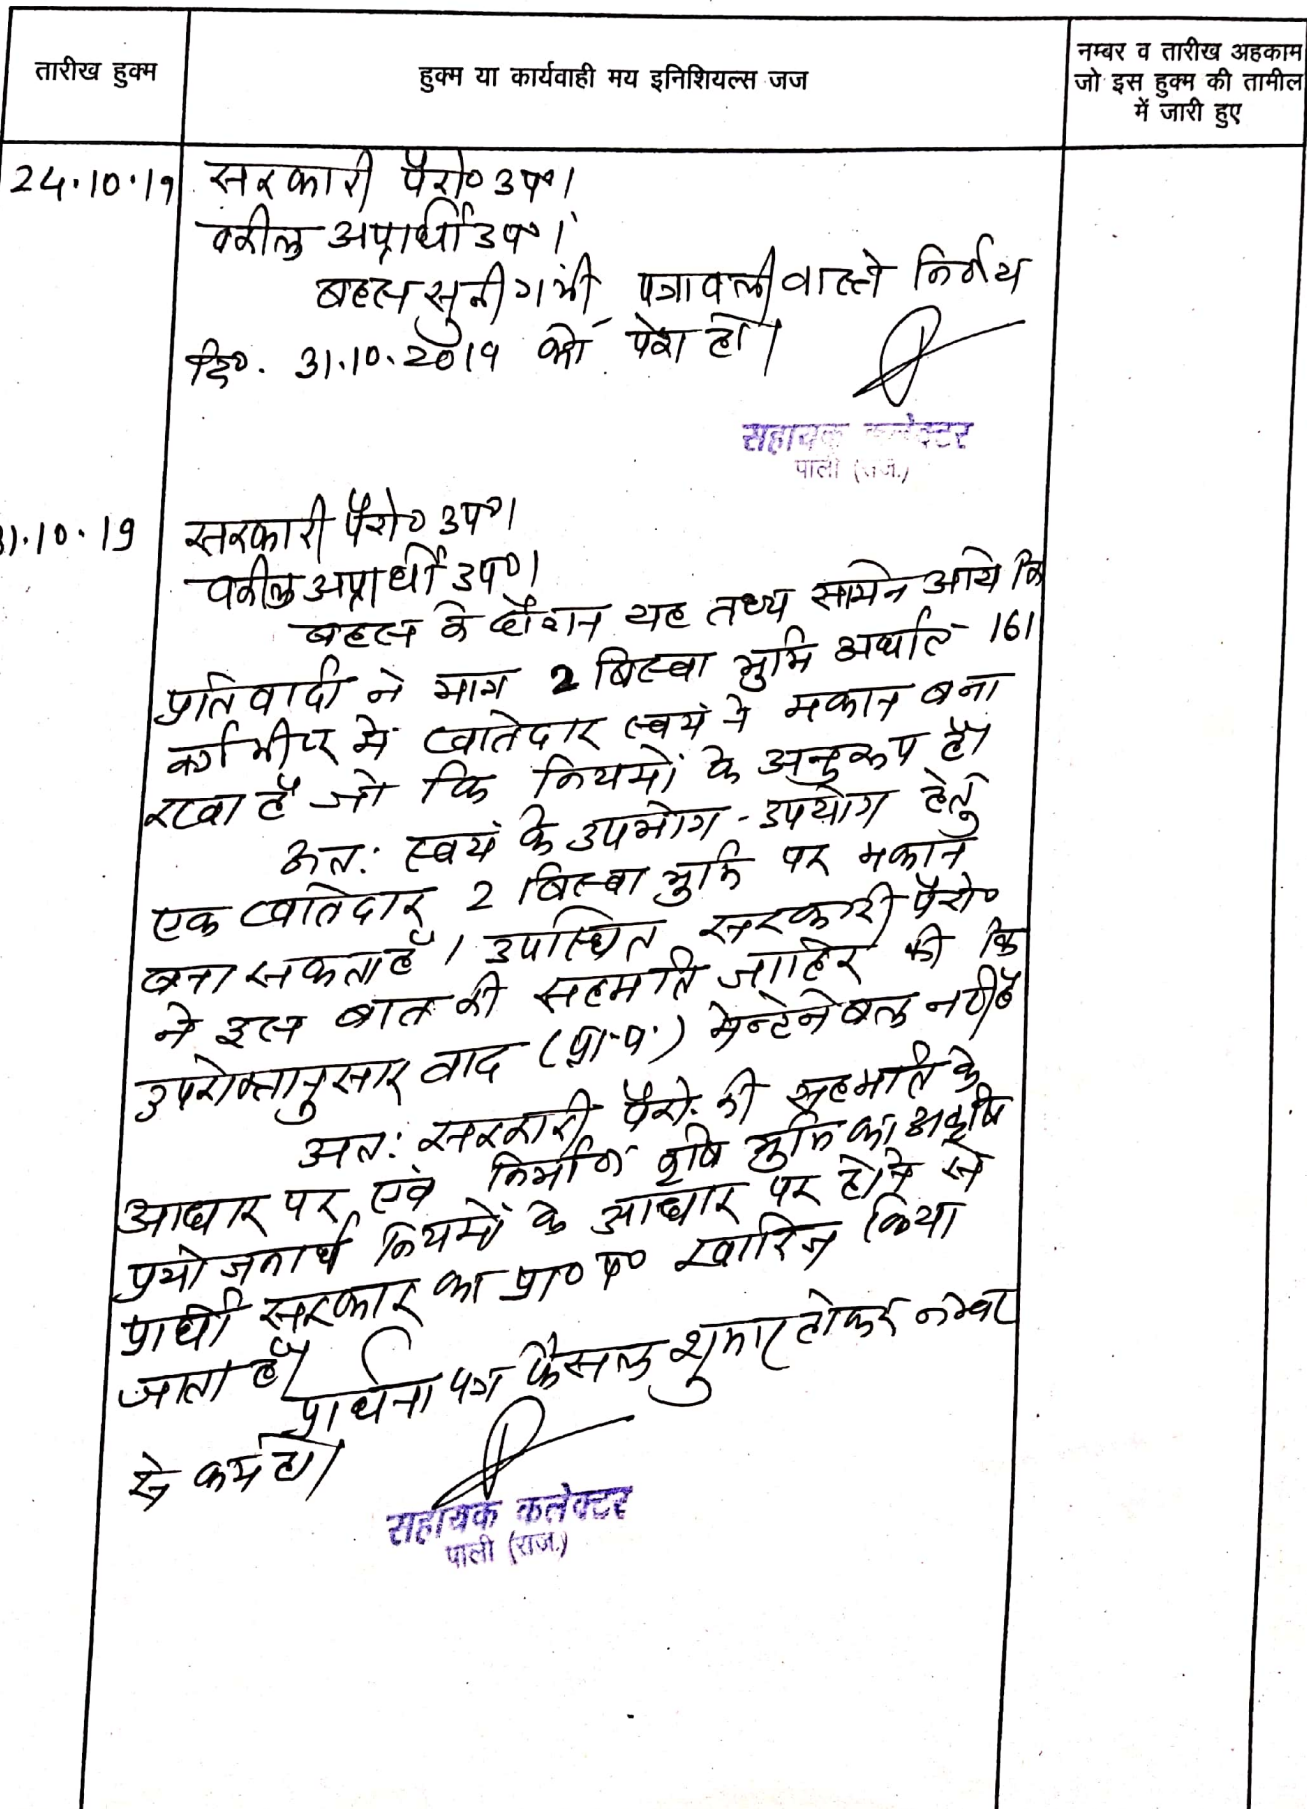 तारीख हुक्म
हुक्म या कार्यवाही मय इनिशियल्स जज
नम्बर व तारीख अहकाम
जो इस हुक्म की तामील
में जारी हुए
24.10.19
सरकारी पैरो० उप०।
वकील अप्रार्थी उप०।
बहस सुनी गयी, पत्रावली वास्ते निर्णय
दि०. 31.10.2019 को पेश हो।
सहायक कलेक्टर
पाली (राज.)
31.10.19
सरकारी पैरो० उप०।
वकील अप्रार्थी उप०।
बहस के दौरान यह तथ्य सामने आये कि
प्रतिवादी ने मात्र 2 बिस्वा भुमि अर्थात 161
वर्ग मीटर मे खातेदार स्वयं ने मकान बना
रखा है जो कि नियमों के अनुरूप है।
अतः स्वयं के उपभोग-उपयोग हेतु
एक खातेदार 2 बिस्वा भुमि पर मकान
बना सकता है। उपस्थित सरकारी पैरो०
ने इस बात की सहमति जाहिर की कि
उपरोक्तानुसार वाद (प्रा.प.) मेन्टेनेबल नही है
अतः सरकारी पैरो. की सहमति के
आधार पर एवं निर्माण कृषि भुमि का अकृषि
प्रयोजनार्थ नियमों के आधार पर होने से
प्रार्थी सरकार का प्रा० प० खारिज किया
जाता है।
प्रार्थना पत्र फैसल शुमार होकर नम्बर
से कम हो।
सहायक कलेक्टर
पाली (राज.)